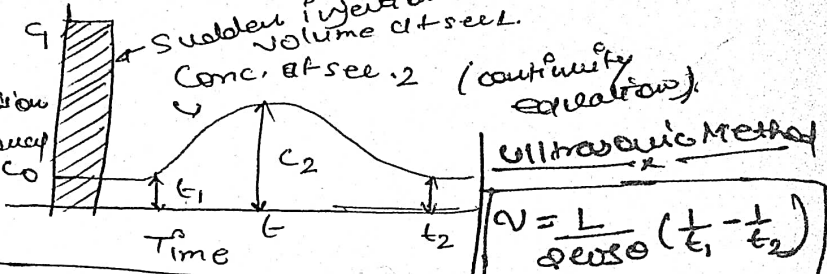 C1
Sudden
volume at sec 1.
Conc. at sec. 2 (continuity
equation).
C0
t1
C2
Time t t2
Ultrasonic Method
V = L/2cosθ (1/t1 - 1/t2)